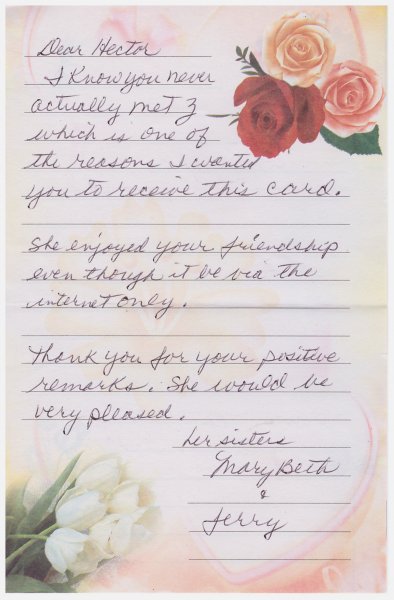 Dear Hector
I know you never
actually met Z
which is one of
the reasons I wanted
you to receive this card.
She enjoyed your friendship
even though it be via the
internet only.
Thank you for your positive
remarks. She would be
very pleased.
her sisters
MaryBeth
&
Jerry